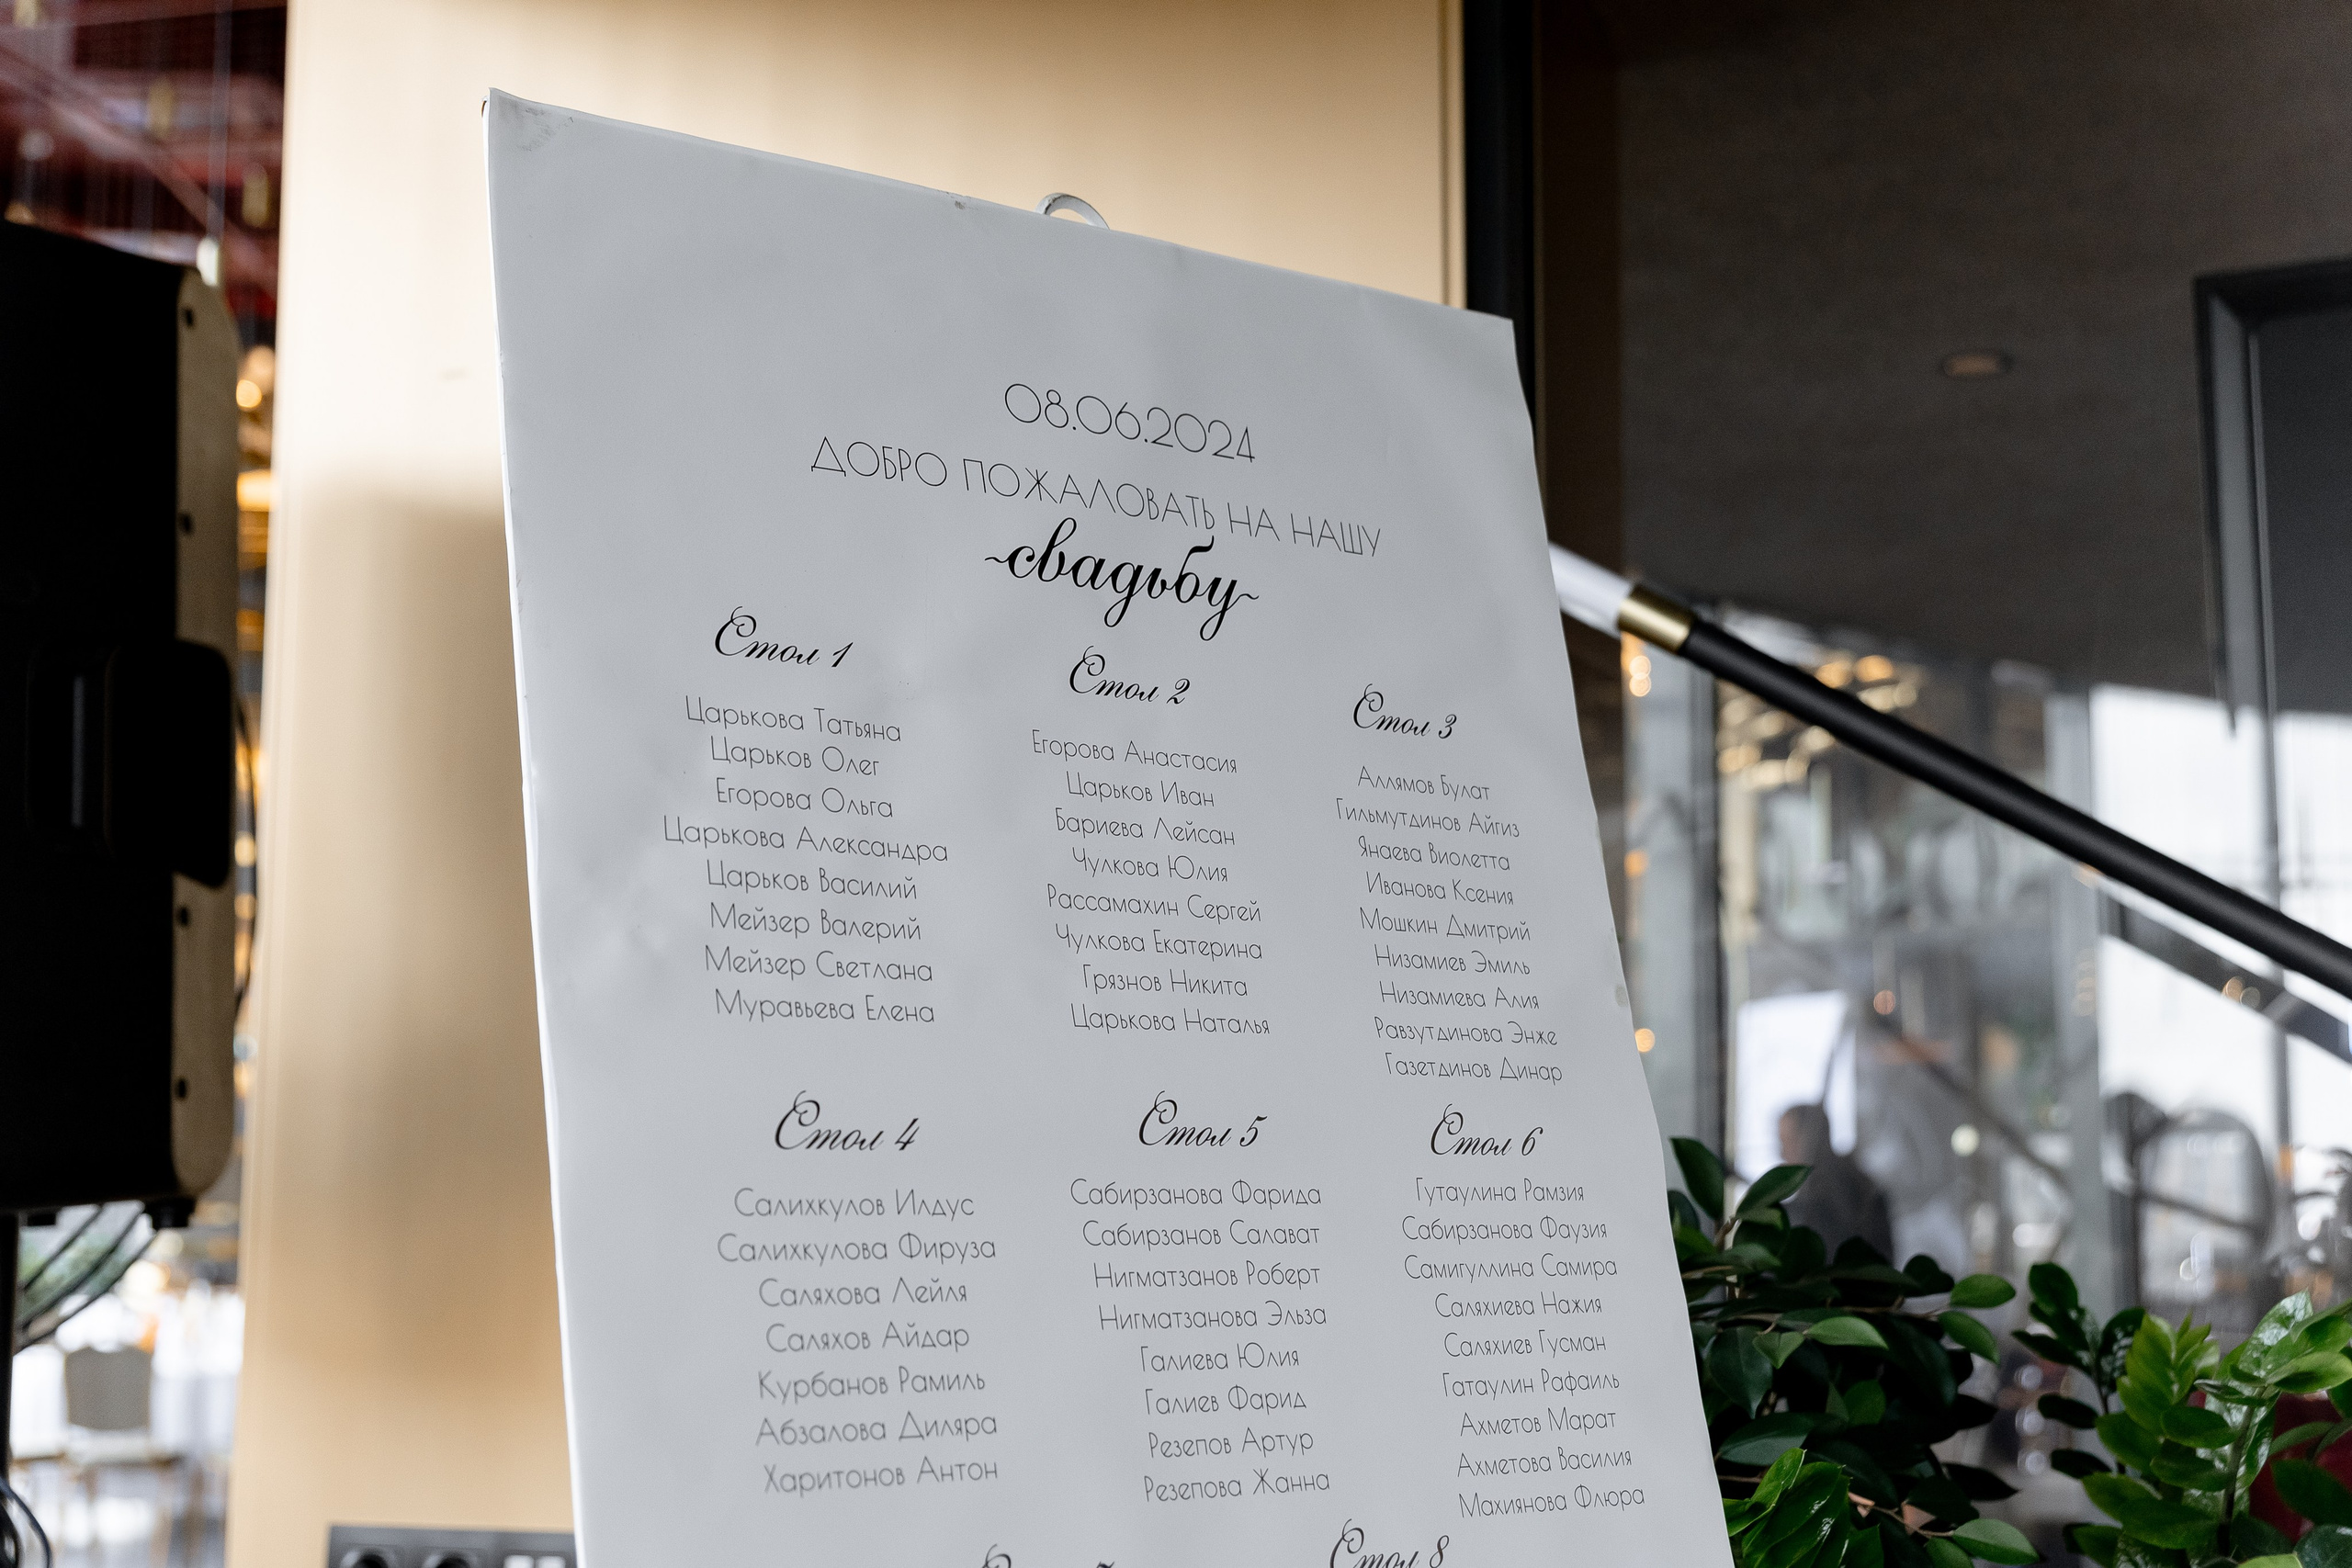 08.06.2024
ДОБРО ПОЖАЛОВАТЬ НА НАШУ
~свадьбу~
Стол 1
Царькова Татьяна
Царьков Олег
Егорова Ольга
Царькова Александра
Царьков Василий
Мейзер Валерий
Мейзер Светлана
Муравьева Елена
Стол 2
Егорова Анастасия
Царьков Иван
Бариева Лейсан
Чулкова Юлия
Рассамахин Сергей
Чулкова Екатерина
Грязнов Никита
Царькова Наталья
Стол 3
Аллямов Булат
Гильмутдинов Айгиз
Янаева Виолетта
Иванова Ксения
Мошкин Дмитрий
Низамиев Эмиль
Низамиева Алия
Равзутдинова Энже
Газетдинов Динар
Стол 4
Салихкулов Илдус
Салихкулова Фируза
Саляхова Лейля
Саляхов Айдар
Курбанов Рамиль
Абзалова Диляра
Харитонов Антон
Стол 5
Сабирзанова Фарида
Сабирзанов Салават
Нигматзанов Роберт
Нигматзанова Эльза
Галиева Юлия
Галиев Фарид
Резепов Артур
Резепова Жанна
Стол 6
Гутаулина Рамзия
Сабирзанова Фаузия
Самигуллина Самира
Саляхиева Нажия
Саляхиев Гусман
Гатаулин Рафаиль
Ахметов Марат
Ахметова Василия
Махиянова Флюра
Стол 8